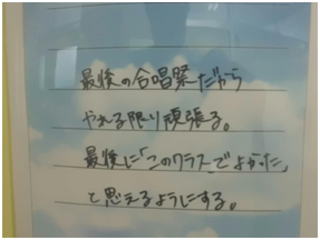 最後の合唱祭だから
やれる限り頑張る。
最後に「このクラスでよかった」
と思えるようにする。